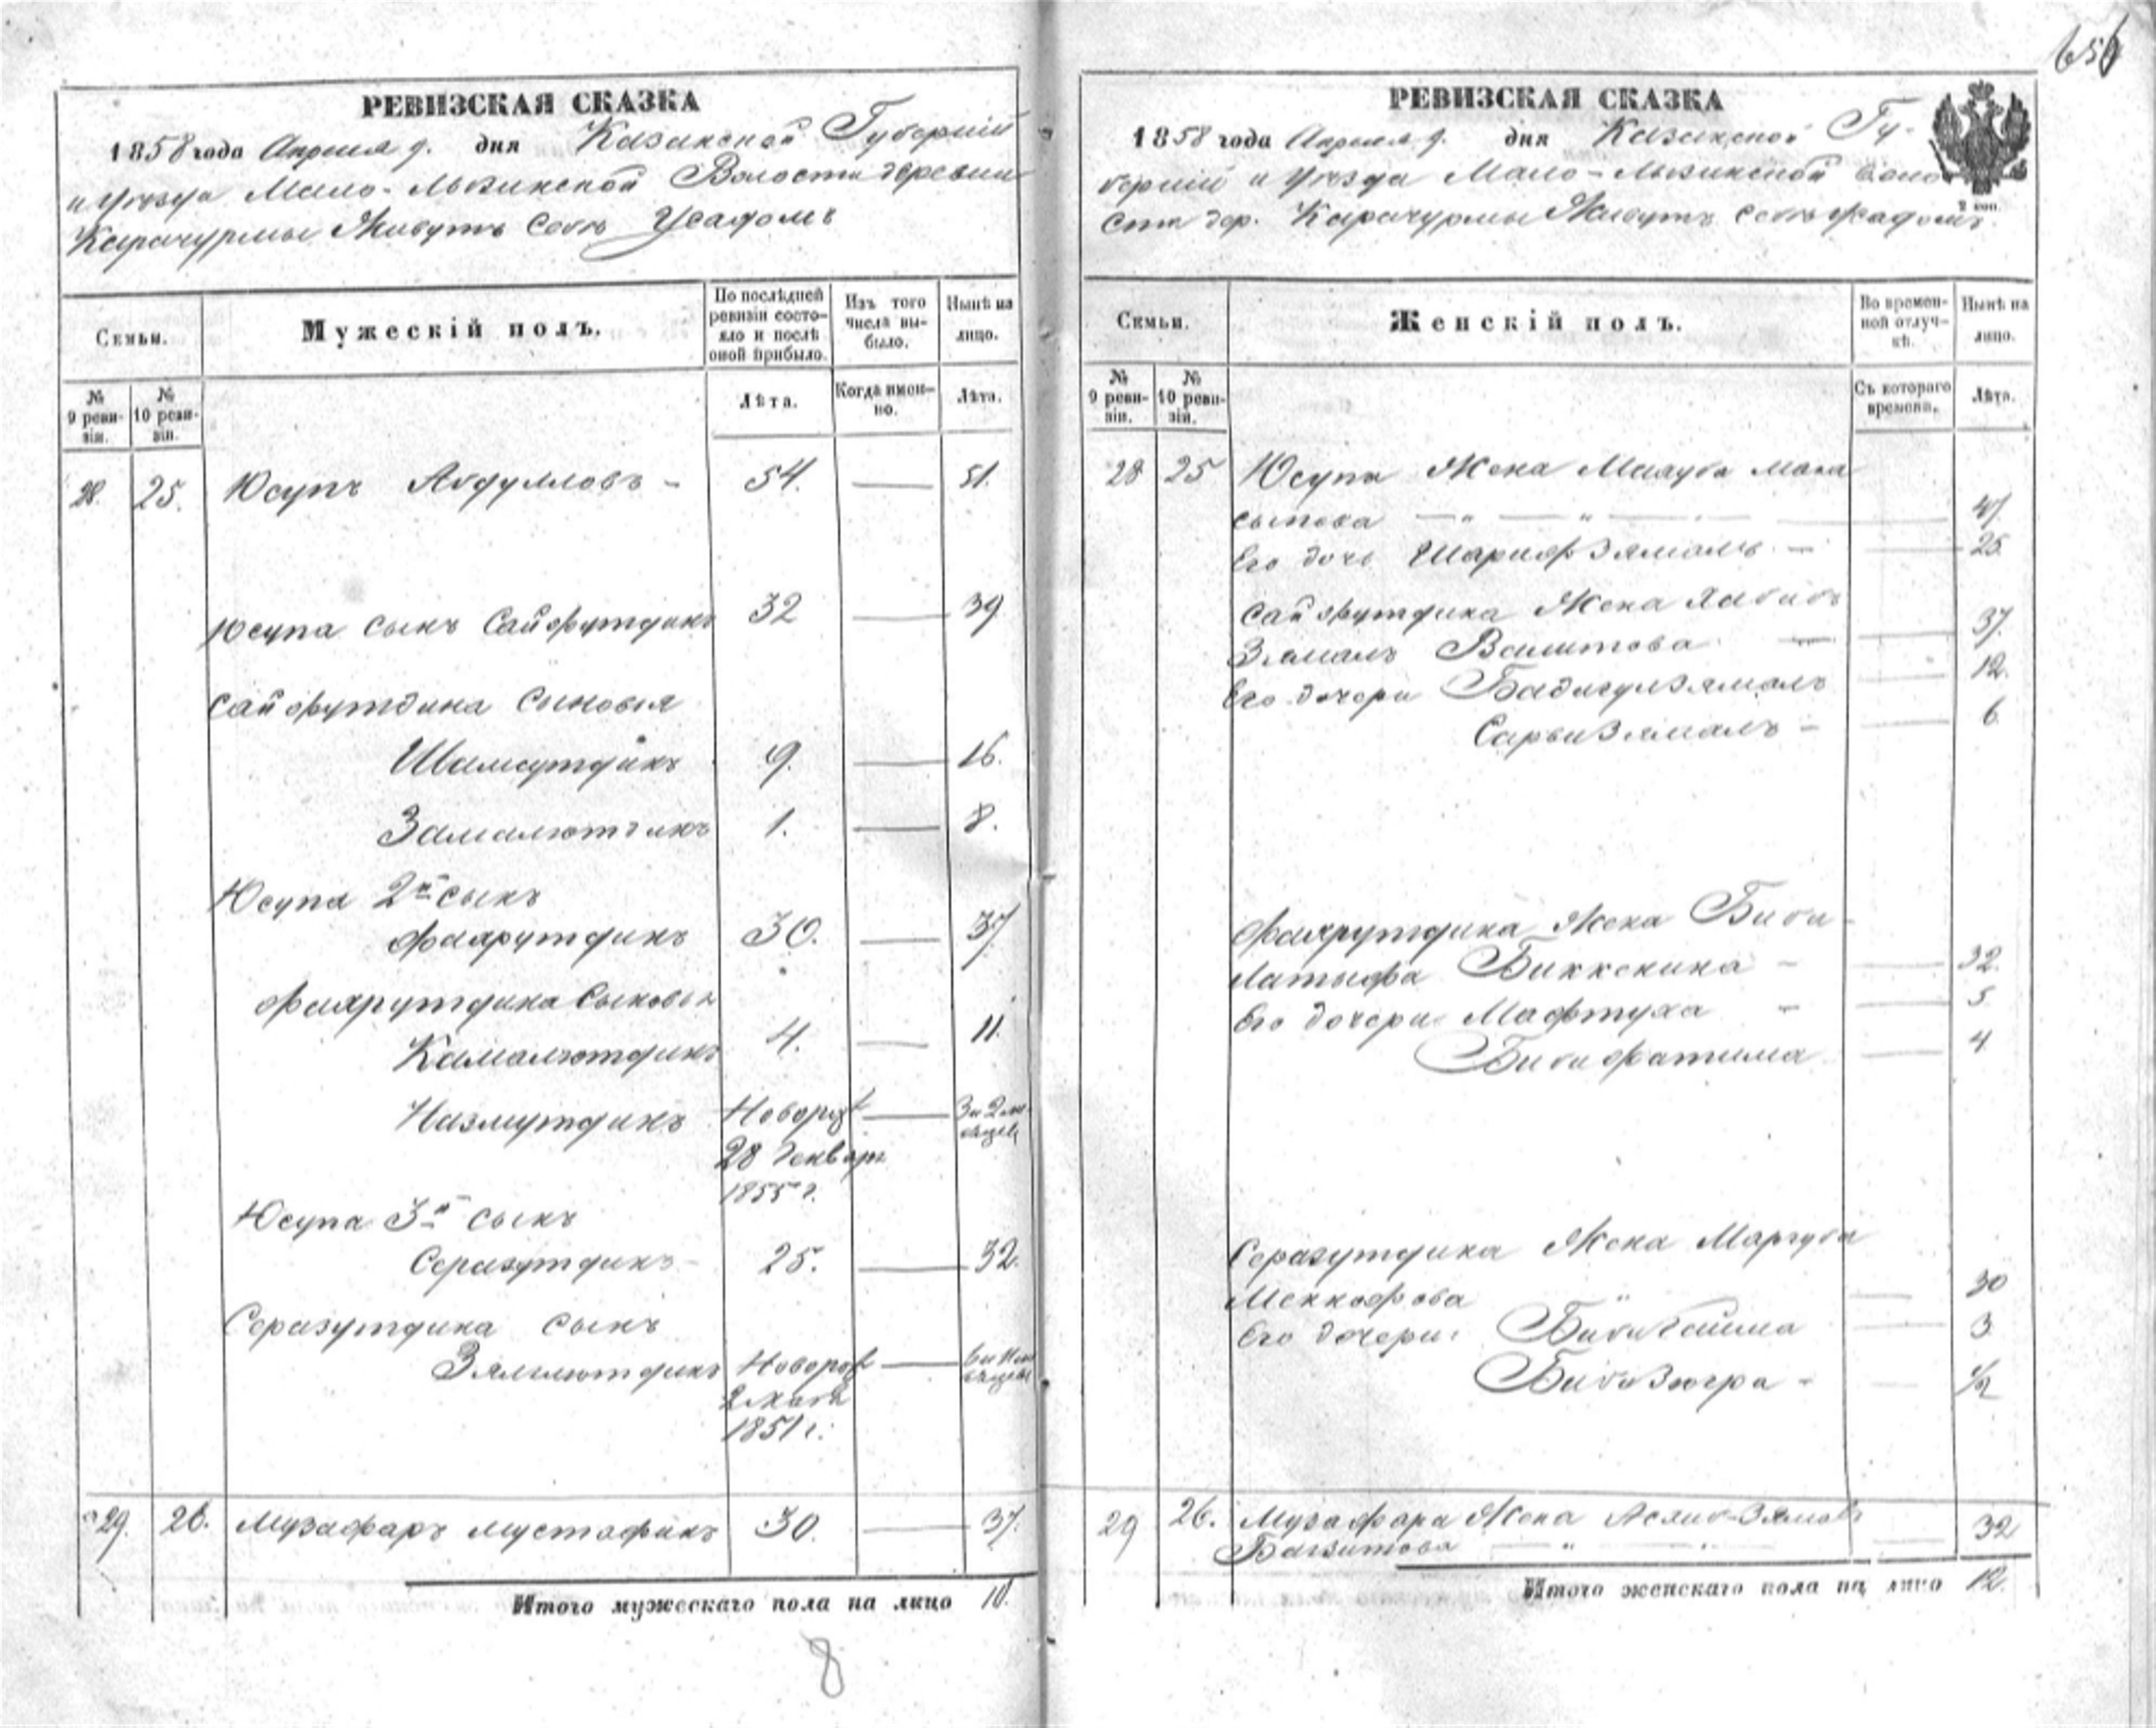 656
РЕВИЗСКАЯ СКАЗКА
1858 года Апреля 9. дня Казанской Губернiи
и уезда Мало- Волости деревни
Карачурмы Живутъ Усадомъ
Семьи.
Мужескій полъ.
По послѣдней ревизіи состояло и послѣ оной прибыло.
Изъ того числа выбыло.
Нынѣ на лицо.
№ 9 ревизіи.
№ 10 ревизіи.
Лѣта.
Когда именно.
Лѣта.
28. 25. Юсупъ Абдулловъ - 54. — 51.
Юсупа сынъ Сайфутдинъ 32 — 39
Сайфутдина Сыновья
Шамсутдинъ 9. — 16.
Замалютдинъ 1. — 8.
Юсупа 2й сынъ
Фахрутдинъ 30. — 37
Фахрутдина Сыновья
Камалютдинъ 4. — 11.
Назмутдинъ Новорож —
28 Генваря
1855 г.
Юсупа 3й сынъ
Серазутдинъ 25. — 32.
Серазутдина сынъ
Зялялютдинъ Новорож —
2 мая
1851 г.
29. 26. Музафаръ Мустафинъ 30. — 37.
Итого мужескаго пола на лицо 10.
8
РЕВИЗСКАЯ СКАЗКА
1858 года Апреля 9. дня Казанской Гу-
берніи и уезда Мало- Воло
2 коп.
сти дер. Карачурмы Живутъ
Семьи.
Женскій полъ.
Во временной отлучкѣ.
Нынѣ на лицо.
№ 9 ревизіи.
№ 10 ревизіи.
Съ котораго времени.
Лѣта.
28 25 Юсупа Жена
47
Его дочь Шарифзямалъ — 25
Сайфутдина Жена Хабибъ
Зямалъ Валитова — 37
Его дочери Бадигулзямалъ — 12.
Сарвизямалъ - — 6
Фахрутдина Жена Биби-
Латыфа Биккенина - — 32.
Его дочери Мафтуха - — 5
Биби Фатима — 4
Серазутдина Жена Маргуба
— 30
Его дочери: — 3
Биби Зюгра - — 1/2
29 26. Музафара Жена
— 32
Итого женскаго пола на лицо 12.